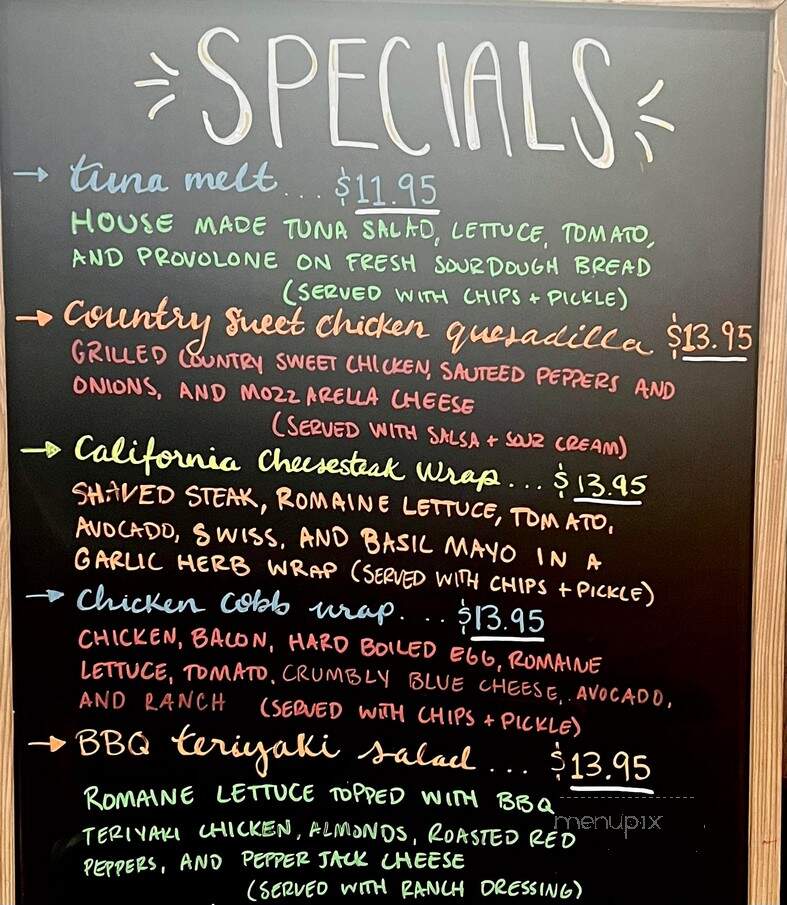 SPECIALS
→ tuna melt... $11.95
HOUSE MADE TUNA SALAD, LETTUCE, TOMATO,
AND PROVOLONE ON FRESH SOURDOUGH BREAD
(SERVED WITH CHIPS + PICKLE)
→ Country Sweet Chicken quesadilla $13.95
GRILLED COUNTRY SWEET CHICKEN, SAUTEED PEPPERS AND
ONIONS, AND MOZZARELLA CHEESE
(SERVED WITH SALSA + SOUR CREAM)
→ California Cheesesteak Wrap... $13.95
SHAVED STEAK, ROMAINE LETTUCE, TOMATO,
AVOCADO, SWISS, AND BASIL MAYO IN A
GARLIC HERB WRAP (SERVED WITH CHIPS + PICKLE)
→ Chicken Cobb wrap.... $13.95
CHICKEN, BACON, HARD BOILED EGG, ROMAINE
LETTUCE, TOMATO, CRUMBLY BLUE CHEESE, AVOCADO,
AND RANCH (SERVED WITH CHIPS + PICKLE)
→ BBQ teriyaki salad... $13.95
ROMAINE LETTUCE TOPPED WITH BBQ
TERIYAKI CHICKEN, ALMONDS, ROASTED RED
PEPPERS, AND PEPPER JACK CHEESE
(SERVED WITH RANCH DRESSING)
menupix